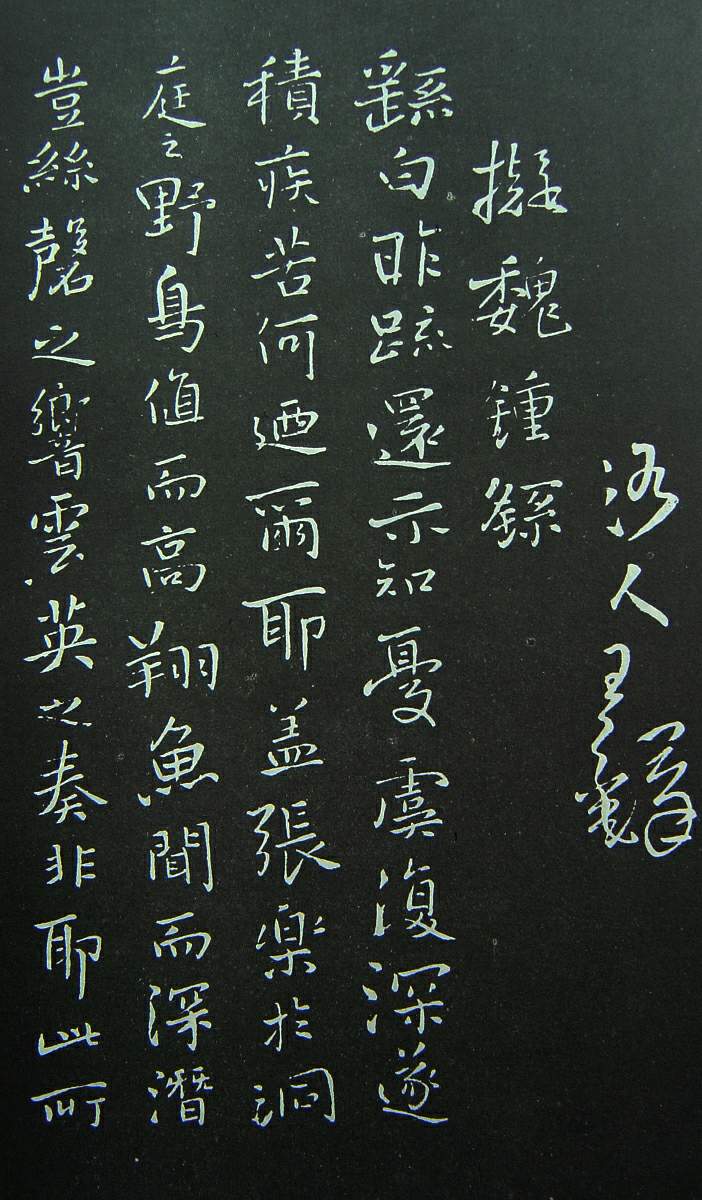 洛人王鐸
擬魏鍾繇
繇白昨疏還示知憂虞復深遂
積疾苦何迺爾耶盖張樂於洞
庭之野鳥值而高翔魚聞而深潛
豈絲磬之響雲英之奏非耶此所